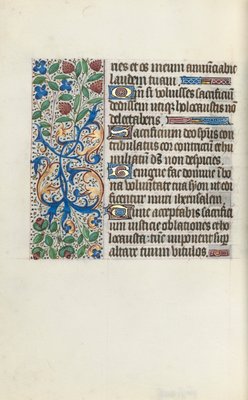 nes et os meum annunciabit
laudem tuam.
Qm̄ si voluisses sacrificiū
dedissem utiq; holocaustis nō
delectaberis.
Sacrificium deo spūs con
tribulatus cor contritū et hu
miliatū ds̄ non despicies.
Benigne fac domine ī bo
na voluntate tua syon ut edi
ficentur muri iherusalem.
Tunc acceptabis sacrifici
um iusticie oblationes et ho
locausta: tūc imponent sup
altare tuum vitulos.